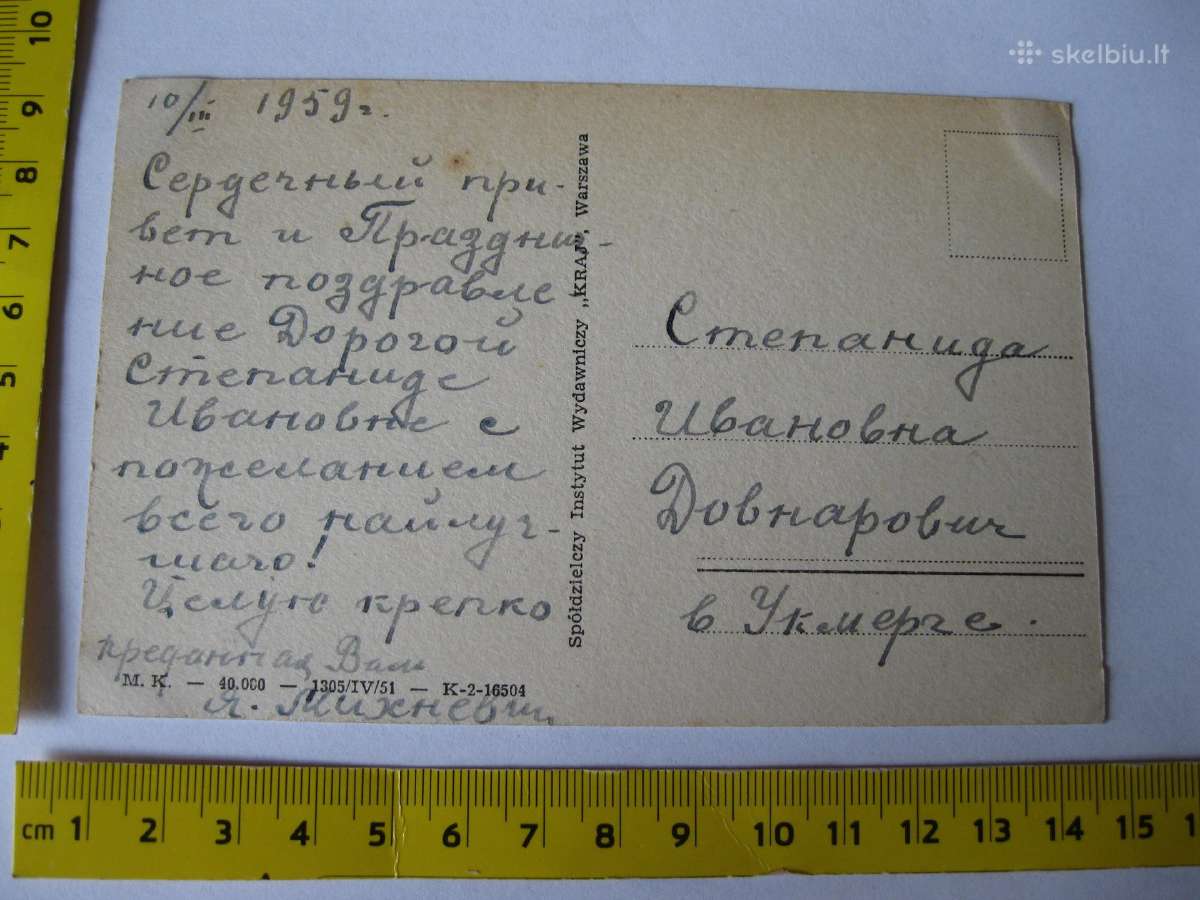 skelbiu.lt
10/III 1959 г.
Сердечный при-
вет и Праздни-
ное поздравле
ние Дорогой
Степаниде
Ивановне с
пожеланием
всего найлуч-
шаго!
Целую крепко
преданная Вам
Я. Михневич
M. K. — 40.000 — 1305/IV/51 — K-2-16504
Spółdzielczy Instytut Wydawniczy „KRAJ”, Warszawa
Степанида
Ивановна
Довнарович
в Укмерге.
10
9
8
7
6
5
4
cm 1 2 3 4 5 6 7 8 9 10 11 12 13 14 15 1